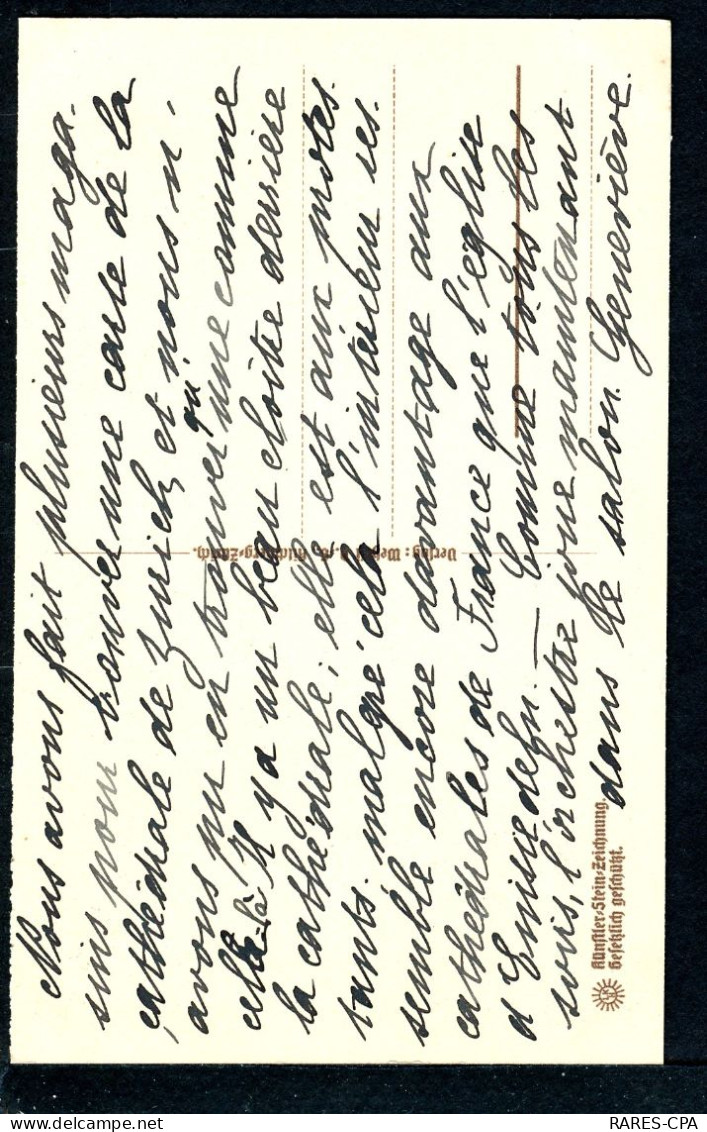 Nous avons fait plusieurs maga-
sins pour trouver une carte de la
cathédrale de Zurich et nous n'
avons pu en trouver qu'une comme
celle-là. Il y a un beau cloître derrière
la cathédrale; elle est aux protes-
tants. malgré cela l'intérieur res-
semble encore davantage aux
cathédrales de France que l'église
d'Einsiedeln. — Comme tous les
soirs, l'orchestre joue maintenant
dans le salon. Geneviève.
Verlag: Kilchberg-Zürich.
Künstler-Stein-Zeichnung.
Gesetzlich geschützt.
RARES-CPA